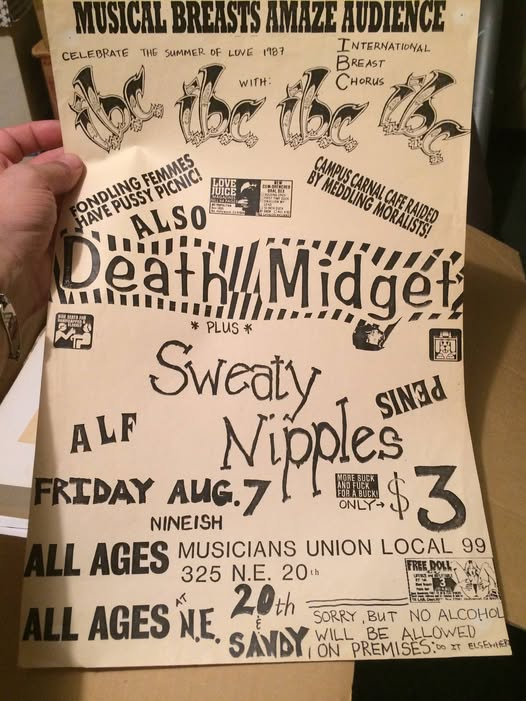 MUSICAL BREASTS AMAZE AUDIENCE
CELEBRATE THE SUMMER OF LOVE 1987
WITH:
INTERNATIONAL
BREAST
CHORUS
ibc ibc ibc ibc
FONDLING FEMMES
HAVE PUSSY PICNIC!
LOVE
JUICE
CAMPUS CARNAL CAFE RAIDED
BY MEDDLING MORALISTS!
ALSO
Death Midget
* PLUS *
Sweaty
Nipples
PENIS
ALF
FRIDAY AUG. 7
NINEISH
MORE SUCK
AND FUCK
FOR A BUCK!
ONLY→ $3
ALL AGES MUSICIANS UNION LOCAL 99
325 N.E. 20th
FREE DOLL
ALL AGES AT N.E. 20th & SANDY
SORRY, BUT NO ALCOHOL
WILL BE ALLOWED
ON PREMISES: DO IT ELSEWHERE